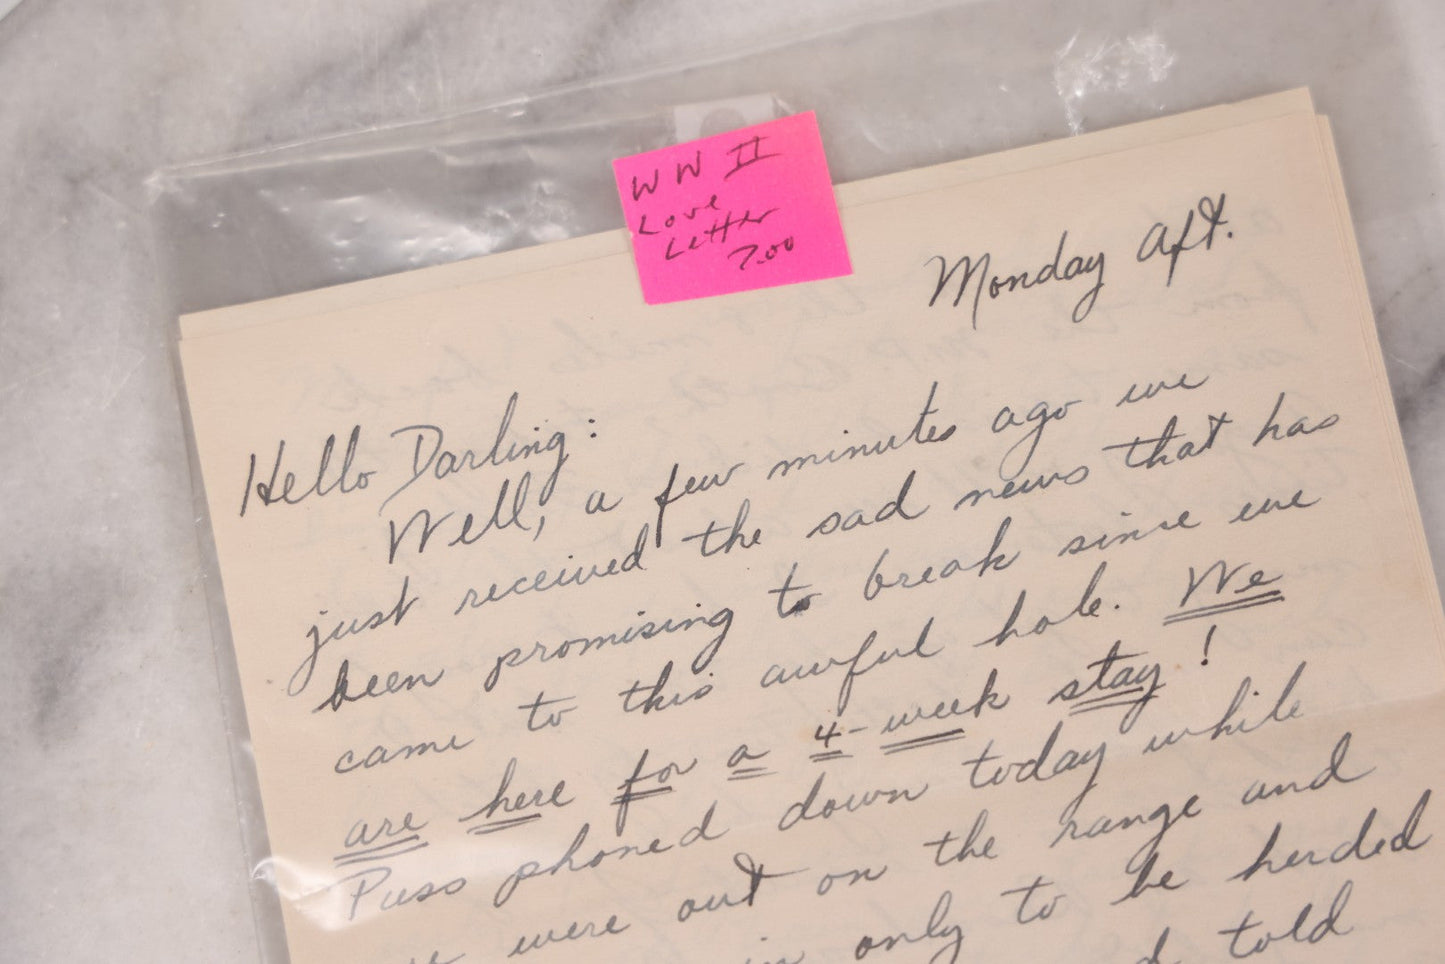 WW II
Love
Letter
7.00
Monday Aft.
Hello Darling:
Well, a few minutes ago we
just received the sad news that has
been promising to break since we
came to this awful hole. We
are here for a 4-week stay!
Puss phoned down today while
were out on the range and
in only to be herded
told